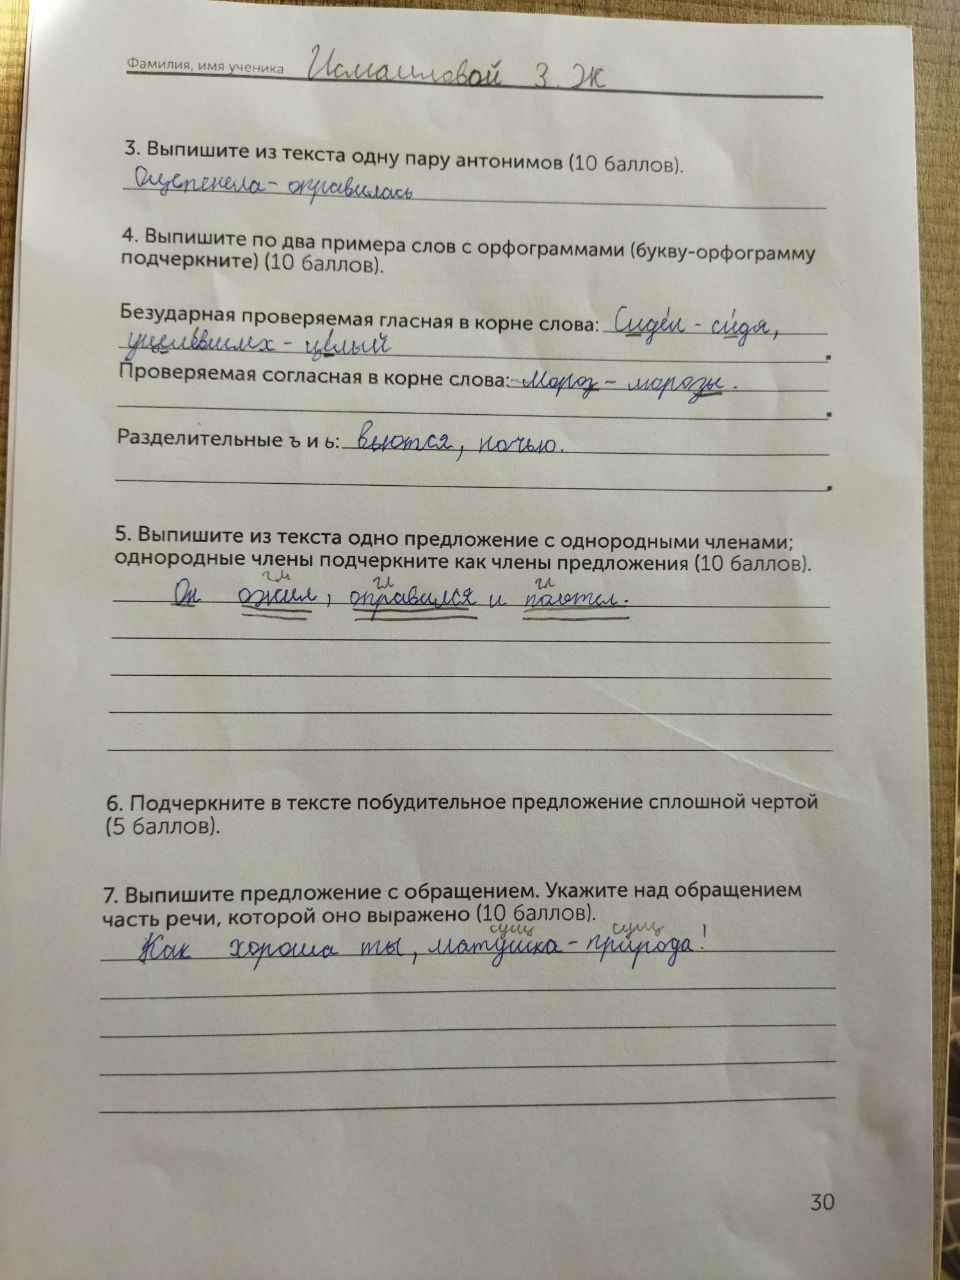 Фамилия, имя ученика Исмаиловой З. Ж
3. Выпишите из текста одну пару антонимов (10 баллов).
Оцепенела - оправилась
4. Выпишите по два примера слов с орфограммами (букву-орфограмму
подчеркните) (10 баллов).
Безударная проверяемая гласная в корне слова: Сидел - сидя,
уцелевших - целый.
Проверяемая согласная в корне слова: Мороз - морозы.
.
Разделительные ъ и ь: вьются, ночью.
.
5. Выпишите из текста одно предложение с однородными членами;
однородные члены подчеркните как члены предложения (10 баллов).
гл гл гл
Он ожил, оправился и
6. Подчеркните в тексте побудительное предложение сплошной чертой
(5 баллов).
7. Выпишите предложение с обращением. Укажите над обращением
часть речи, которой оно выражено (10 баллов).
сущ сущ
Как хороша ты, матушка - природа!
30